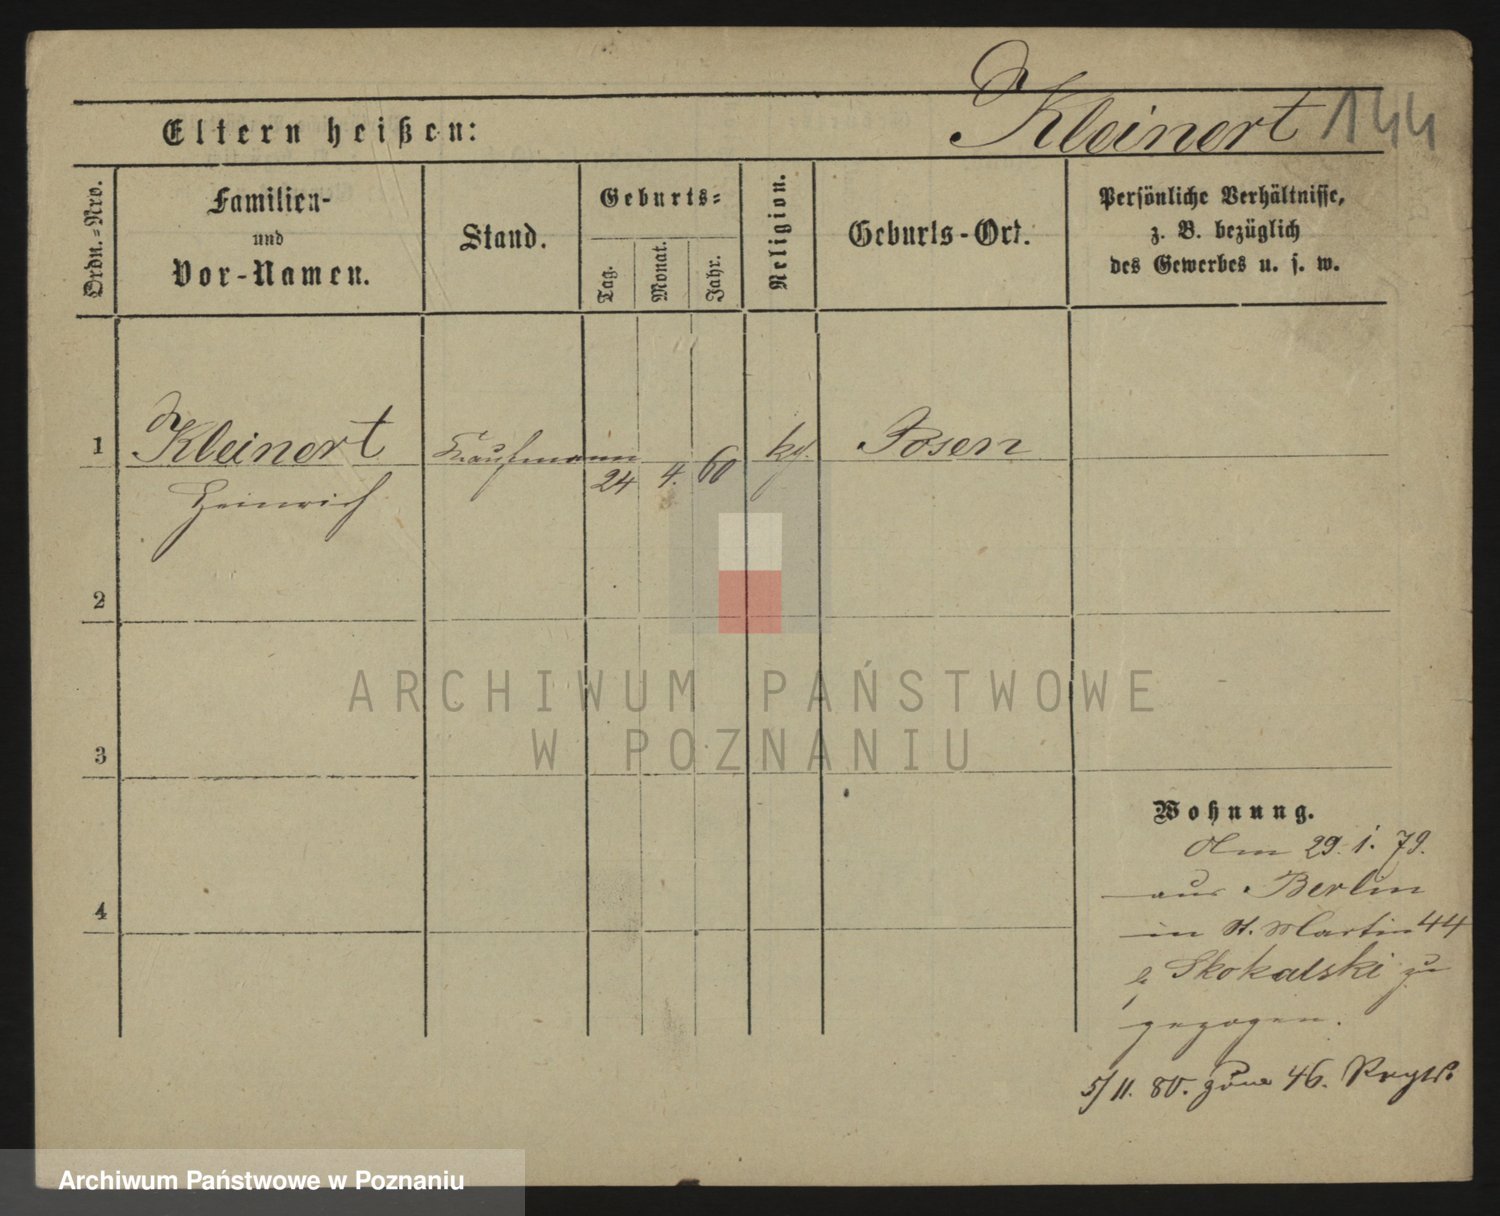 Kleinert 144
Eltern heißen:
Ordn.-Nro.
Familien-
und
Vor-Namen.
Stand.
Geburts-
Tag.
Monat.
Jahr.
Religion.
Geburts-Ort.
Persönliche Verhältnisse,
z. B. bezüglich
des Gewerbes u. s. w.
1 Kleinert Kaufmann 24 4. 60 kſ. Posen
Heinrich
2
3
4
Wohnung.
Am 29. 1. 79.
aus Berlin
in St. Martin 44
b Skokalski zu
gezogen.
5/11. 80. zum 46. Rgt.
ARCHIWUM PAŃSTWOWE
W POZNANIU
Archiwum Państwowe w Poznaniu